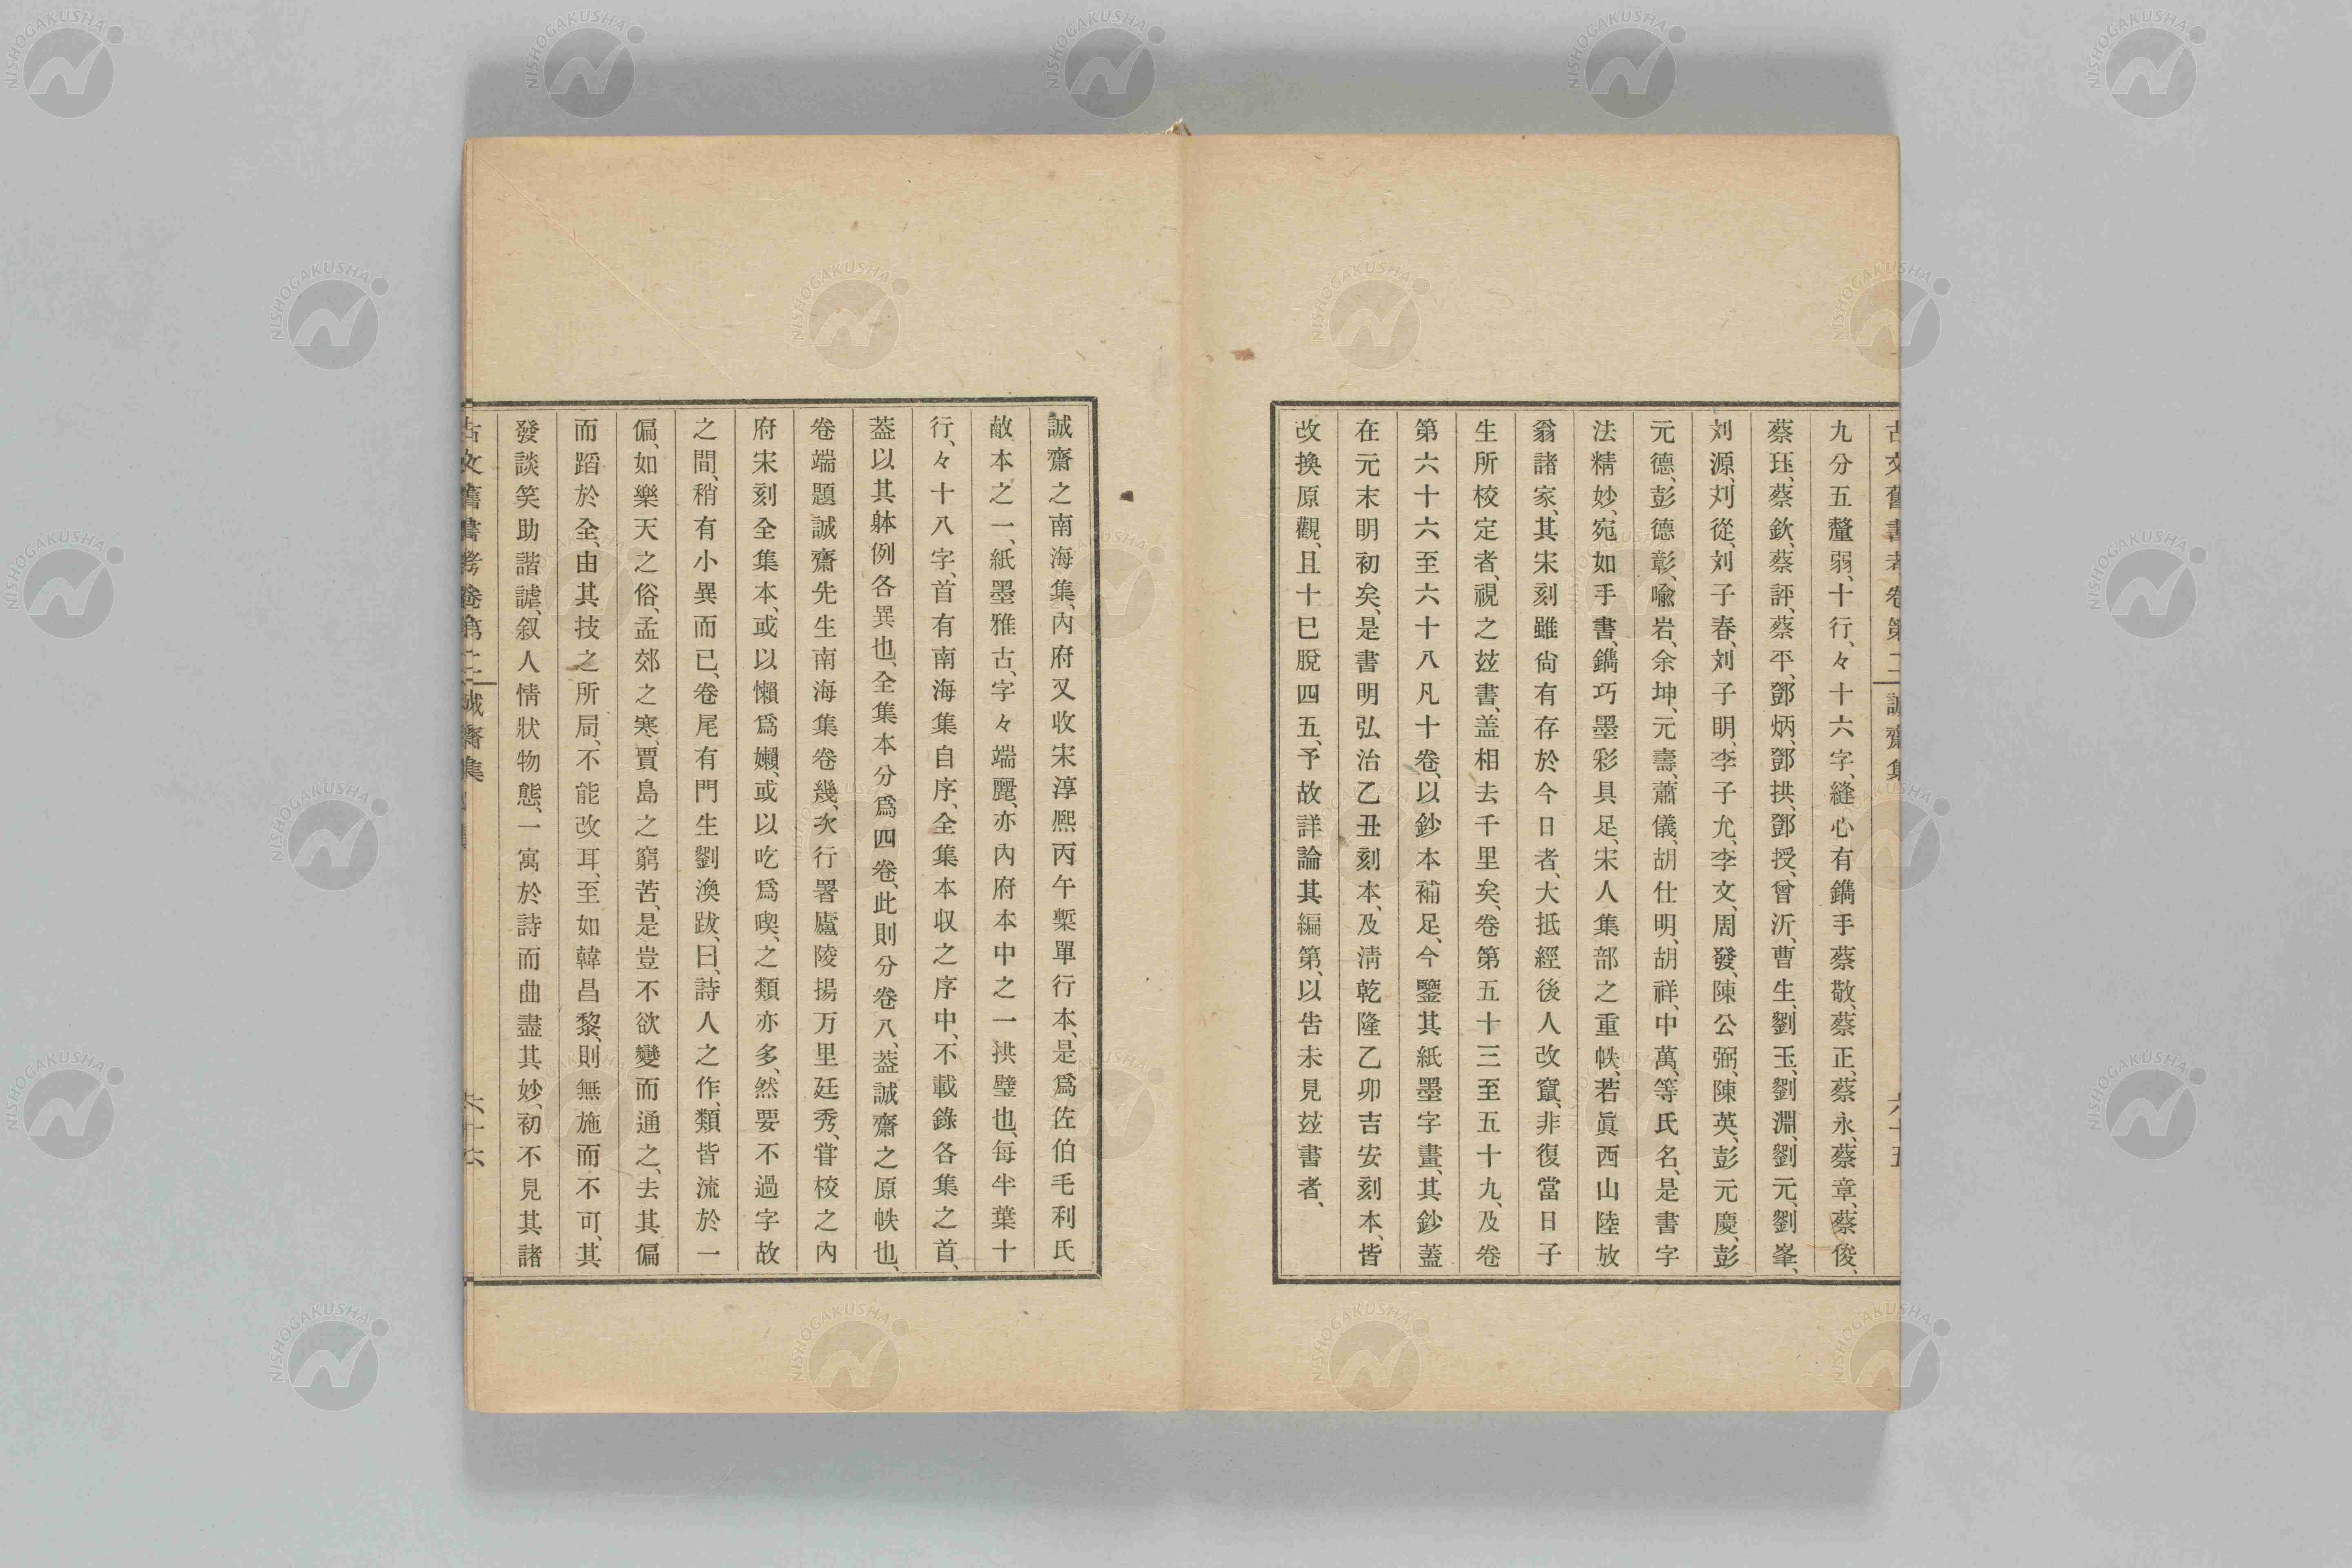 古文舊書考卷第二 誠齋集 六十五
九分五釐弱、十行、々十六字、縫心有鐫手蔡敬、蔡正、蔡永、蔡章、蔡俊、
蔡珏、蔡欽、蔡評、蔡平、鄧炳、鄧拱、鄧授、曾沂、曹生、劉玉、劉淵、劉元、劉峯、
刘源、刘從、刘子春、刘子明、李子允、李文、周發、陳公弼、陳英、彭元慶、彭
元德、彭德彰、喩岩、余坤、元壽、蕭儀、胡仕明、胡祥、中萬、等氏名、是書字
法精妙、宛如手書、鐫巧墨彩具足、宋人集部之重帙、若眞西山陸放
翁諸家、其宋刻雖尙有存於今日者、大抵經後人改竄、非復當日子
生所校定者、視之玆書、盖相去千里矣、卷第五十三至五十九、及卷
第六十六至六十八凡十卷、以鈔本補足、今鑒其紙墨字畫、其鈔蓋
在元末明初矣、是書明弘治乙丑刻本、及淸乾隆乙卯吉安刻本、皆
改換原觀、且十已脫四五、予故詳論其編第、以告未見玆書者、
誠齋之南海集、內府又收宋淳熙丙午槧單行本、是爲佐伯毛利氏
献本之一、紙墨雅古、字々端麗、亦內府本中之一拱璧也、每半葉十
行、々十八字、首有南海集自序、全集本収之序中、不載錄各集之首、
蓋以其躰例各異也、全集本分爲四卷、此則分卷八、蓋誠齋之原帙也、
卷端題誠齋先生南海集卷幾、次行署廬陵揚万里廷秀、甞校之內
府宋刻全集本、或以懶爲嬾、或以吃爲喫、之類亦多、然要不過字故
之間、稍有小異而已、卷尾有門生劉渙跋、曰、詩人之作、類皆流於一
偏、如樂天之俗、孟郊之寒、賈島之窮苦、是豈不欲變而通之、去其偏
而蹈於全、由其技之所局、不能改耳、至如韓昌黎、則無施而不可、其
發談笑助諧謔、叙人情狀物態、一寓於詩而曲盡其妙、初不見其諸
古文舊書考卷第二 誠齋集 六十六